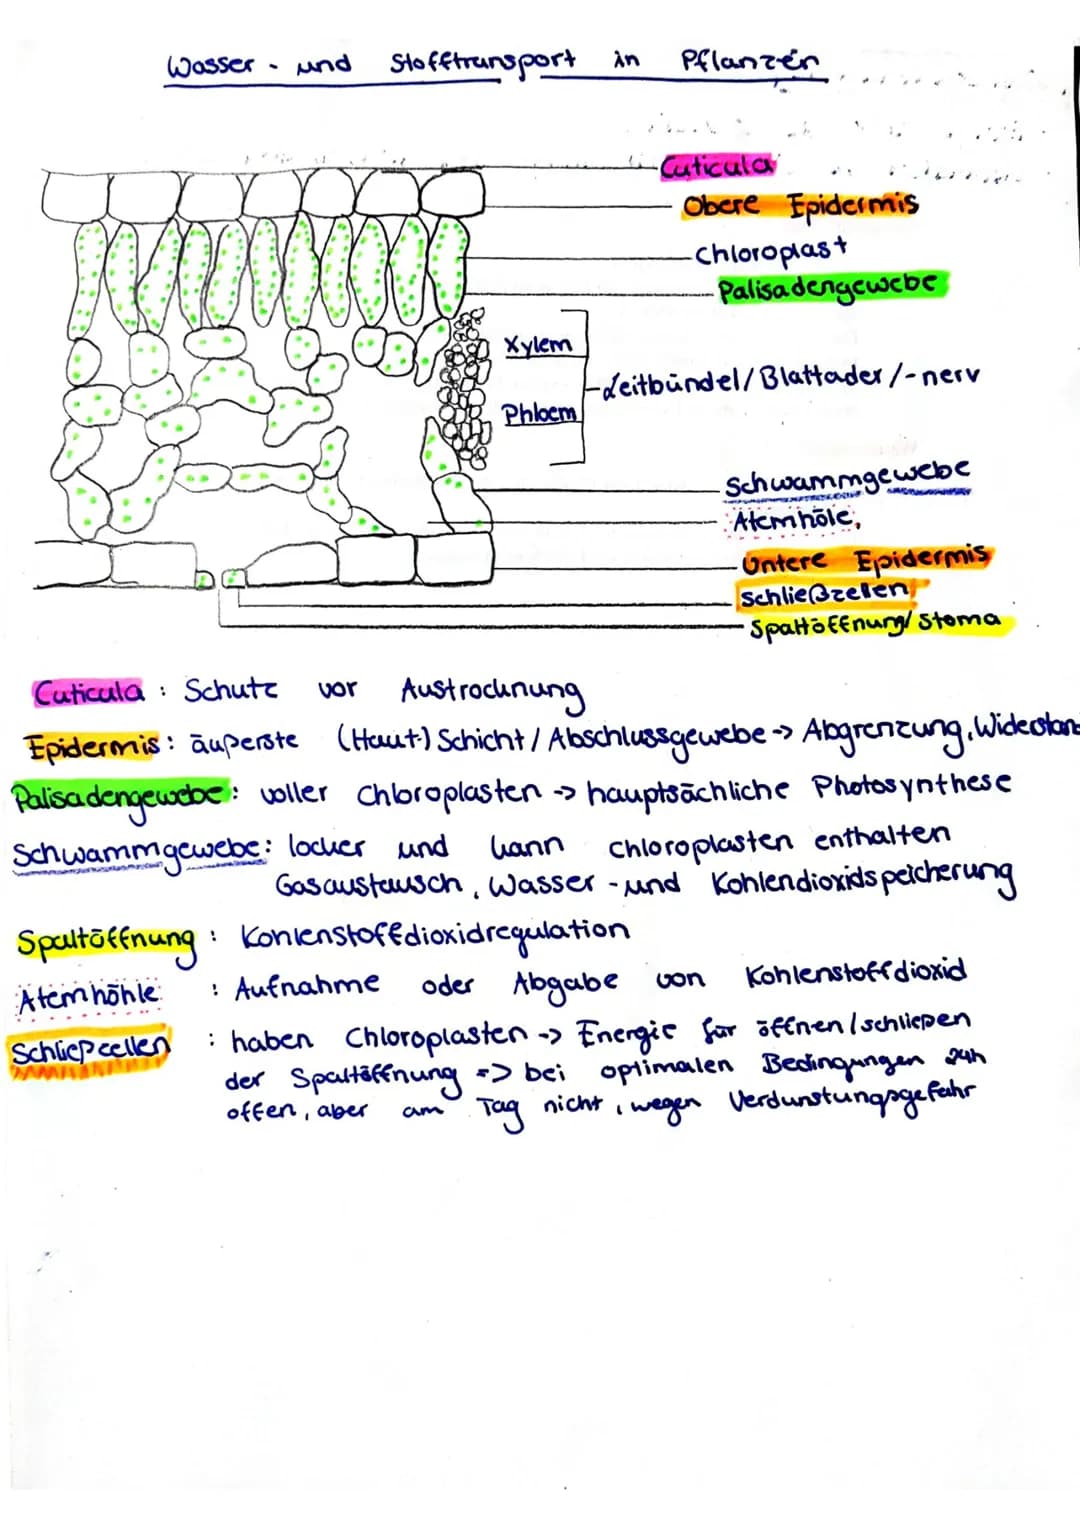 Wasser - und Stofftransport in Pflanzen
Cuticula
Obere Epidermis
Chloroplast
Palisadengewebe
Xylem
Leitbündel/Blattader/-nerv
Phloem
Schwammgewebe
Atemhöle,
Untere Epidermis
Schließzellen
Spaltöffnung/Stoma
Cuticula : Schutz vor Austrocknung
Epidermis : äußerste (Haut-) Schicht / Abschlussgewebe -> Abgrenzung, Widerstan
Palisadengewebe : voller Chloroplasten -> hauptsächliche Photosynthese
Schwammgewebe : locker und kann chloroplasten enthalten
Gasaustausch, Wasser - und Kohlendioxidspeicherung
Spaltöffnung : Kohlenstoffdioxidregulation
Atemhöhle : Aufnahme oder Abgabe von Kohlenstoffdioxid
Schließzellen : haben Chloroplasten -> Energie für öffnen/schließen
der Spaltöffnung => bei optimalen Bedingungen 24h
offen, aber am Tag nicht, wegen Verdunstungsgefahr